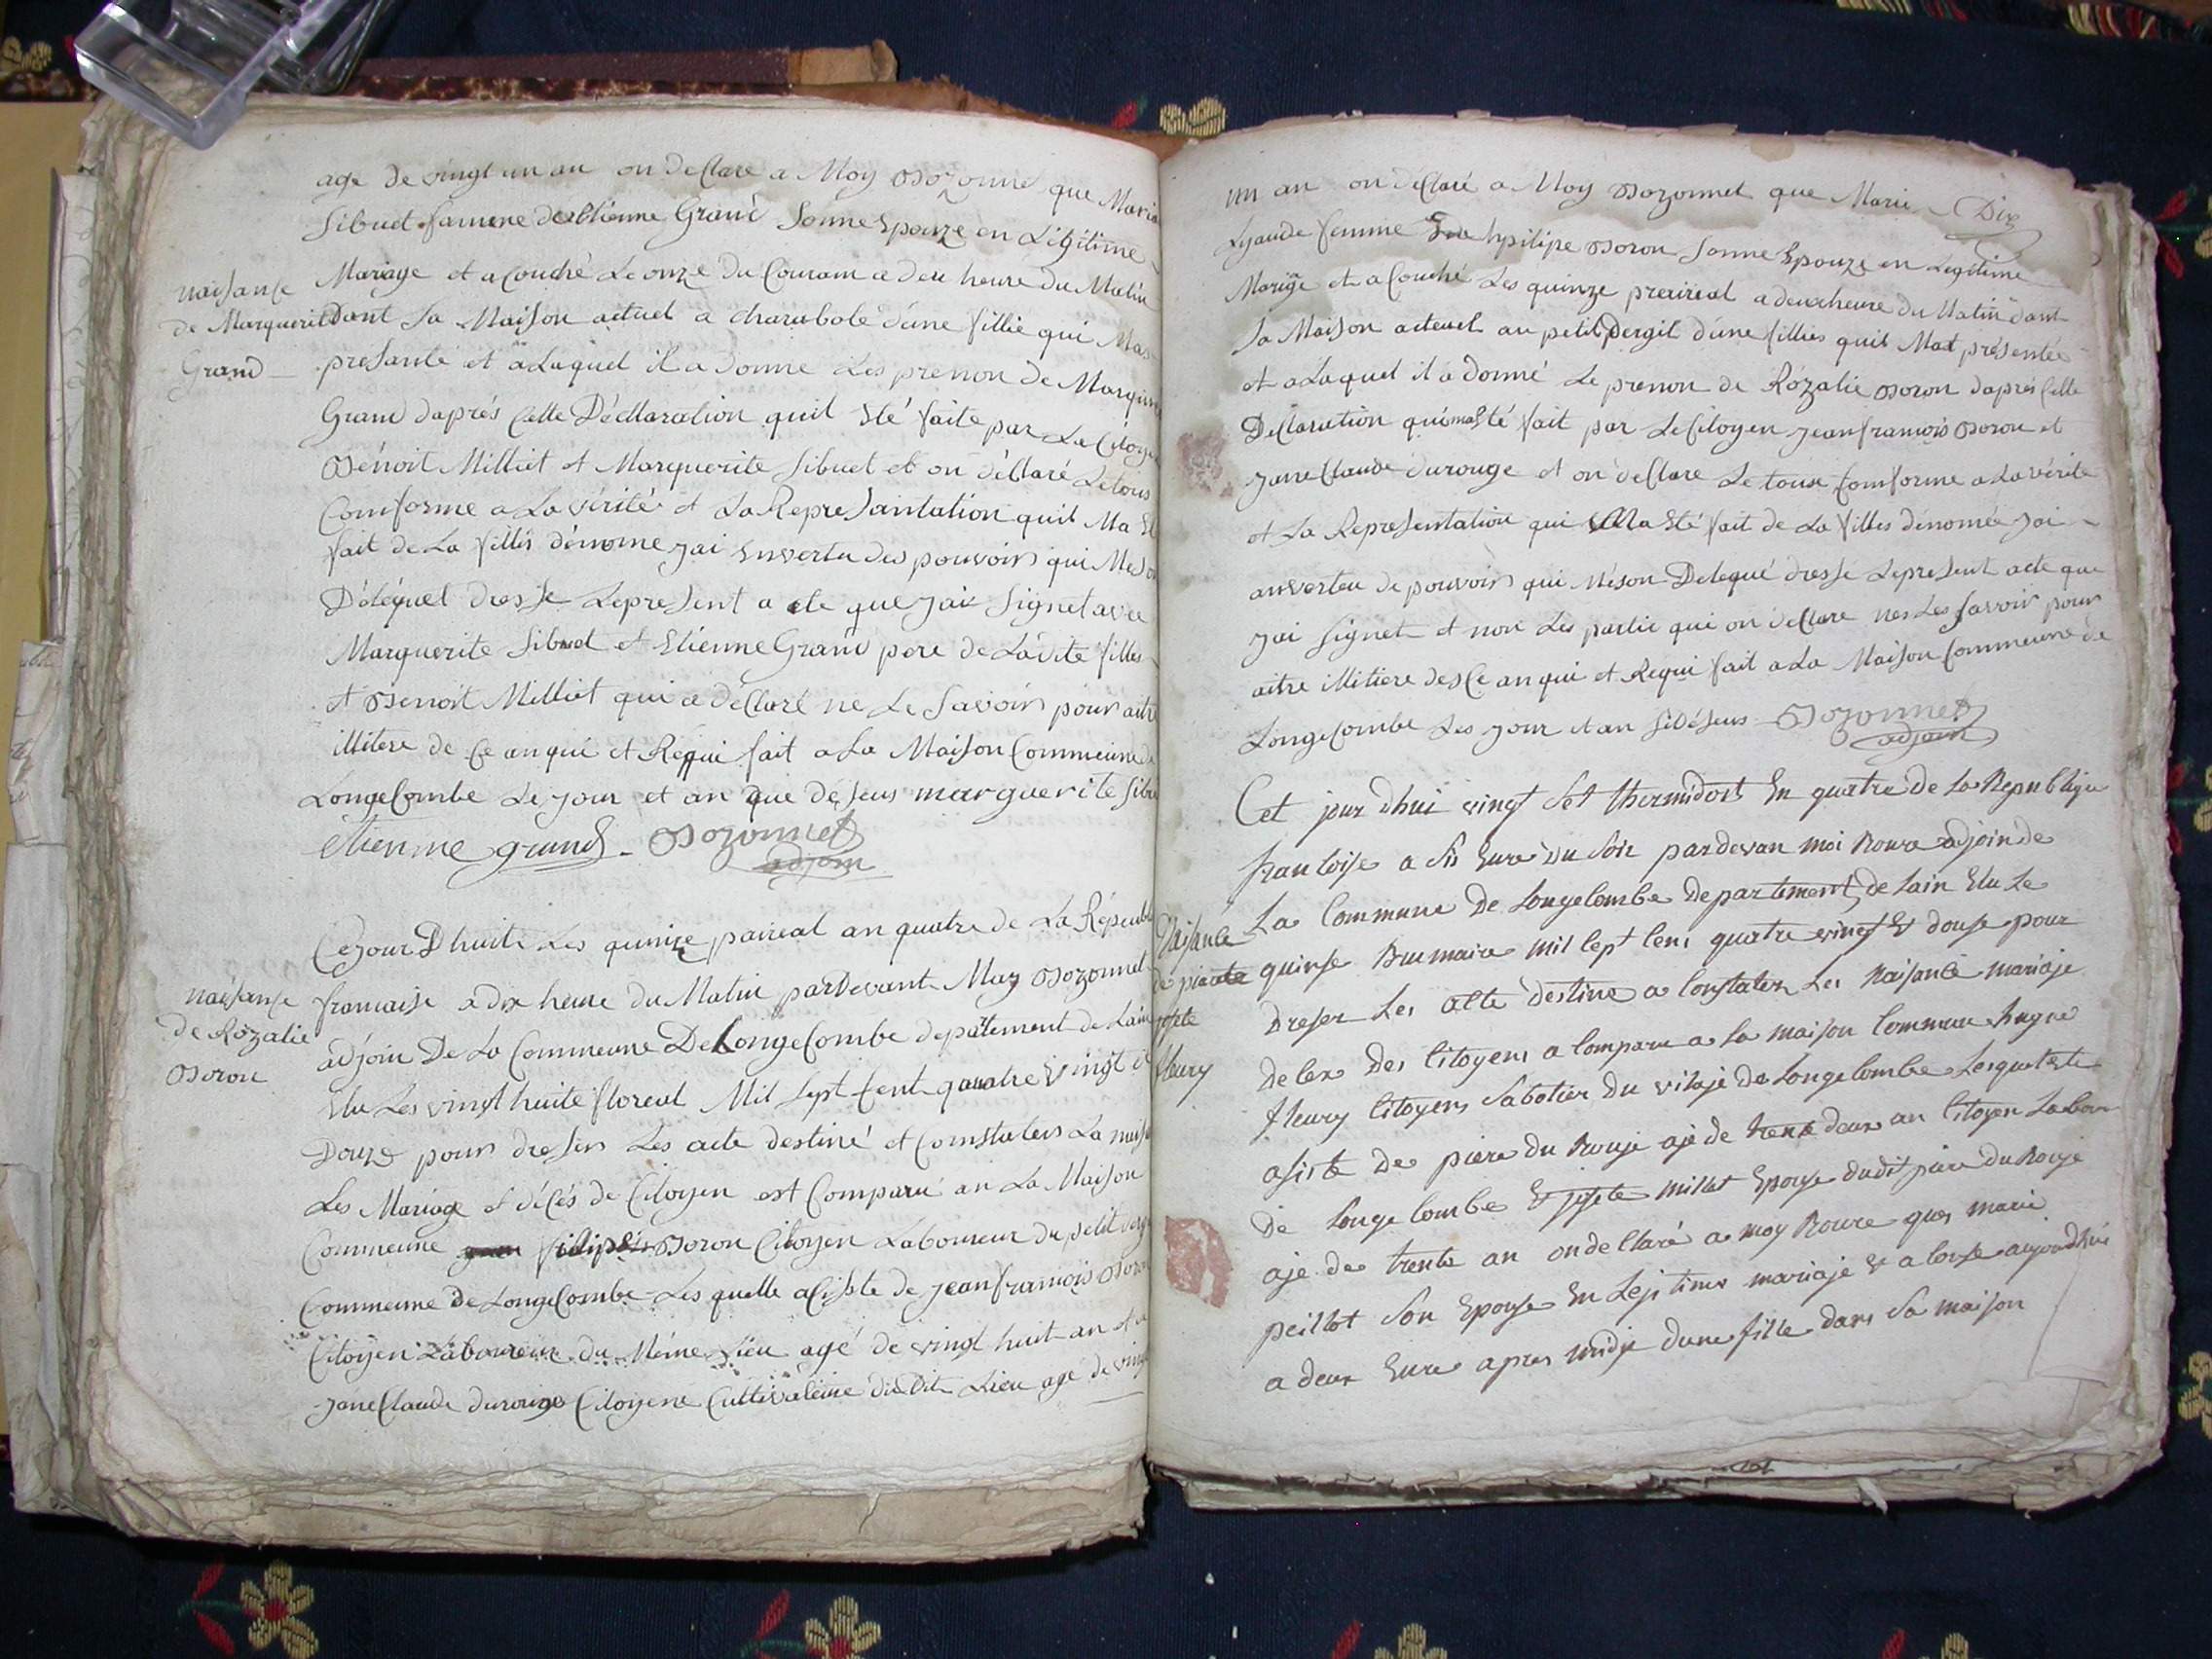 age de vingt un an on declare a Moy Bozonnet que Maria
Sibuet famme de Etienne Grand Sonne Epouze en Légitime
Mariage et a Couché Le onze du Couram a deu heure du Matin
naisance
de Marguerit
Grand
Dant Sa Maison actuel a charabole d'une fillie qui Mas
presanté et a Laquel il a donne Les prenon de Margue
Grand daprés Cette Décllaration quil Eté faite par La Citoye
Benoit Milliet et Marguerite Sibuet et on déClaré Le tous
Comforme a La vérité et La Represantation quil Ma Et
fait de La fillis dénome jai Envertu des pouvoirs qui Meso
Déléguel dresse Le present acte que jai Signet avec
Marguerite Sibuet et Etienne Grand pere de La dite filles
et Benoit Milliet qui a déClaré ne Le Savoir pour aitre
illitere de Ce anqui et Requi fait a La Maison Commeune de
LongeCombe Le jour et an que deseus marguerite Sibu
etienne grand Bozonnet
adjoin
Cejour Dhuite Les quinze pairial an quatre de La Républ
naisanse
de Rózalie
Boron
francaise a dix heure du Matin par Devant Moy Bozonnet
adjoin De La Commeune De LongeCombe depatement de Lain
Elu Les vingt huite floreal Mil Sept Cent quatre vingt et
Douze pour dresers Les acte destiné et Comstaters La nais
Les Mariage et déCés de Citoyen est Comparu an La Maison
Commeune filipe Boron Citoyen Laboureur du petit verg
Commeune de LongeCombe Les quelle aCisste de jean francois Boron
Citoyen Laboureur du Méme Lieu agé de vingt huit an et
jane Claude durouge Citoyene Cultivateure du Dit Lieu age de ving
un an on declaré a Moy Bozonnet que Marie Dix
Lyaude femme hpilipe Boron Sonne Epouze en Legitime
Mariage et a Couché Les quinze prairial a deux heure du Matin dant
Sa Maison acteuel au petit Vergit d'une fillies quil Mat présentée
et a Laquel il a donné Le prenon de Rózalie Boron daprés Celle
DeClaration qui mas té fait par Le Citoyen jean francois Boron et
jane Claude durouge et on deClare Le toux Comforme a La vérite
et La Representation qui Ma Eté fait de La filles dénomée jai
anverteu de pouvoirs qui Méson Delegué dresse Le present acte que
jai Signet et non Les partie qui on deClare nes Les Savoir pour
aitre illitiere des Ce anqui et Requi fait a La Maison Commeune de
LongeCombe Les jour et an Sidéseus Bozonnet
adjoin
Cet jour dhui vingt Set thermidort En quatre de La Republique
francoise a Sis Eure du Soir pardevan moi Roux adjoin de
La Commune De Longelombe Departement de Lain Elu Le
Naisance
de
josete
fleury
quinse Brumaire mil Sept Cens quatre vingt Et douse pour
Dreser Les acte destine a Constater Les Naisance mariaje
deCex Des Citoyens a Comparu a La maison Commune hugue
fleury Citoyens Sabotier Du vilaje de Longelombe Lesquel Ete
asiste De piere Du Rouje aje de trente deux an Citoyen Labour
De Longe Combe Et josete millet Epouse dudit piere Du Rouje
aje de trente an on declaré a moy Roux que marie
peillot Son Epouse En Lejitime mariaje Et a Couse aujourdhui
a deux Eure apres midje dune fille dans Sa maison